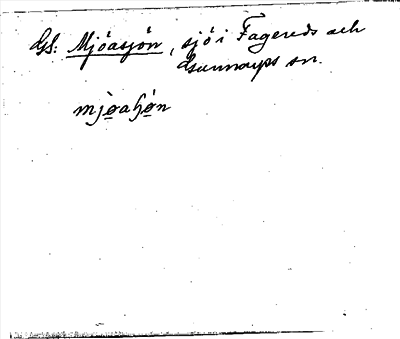 GS: Mjöasjön, sjö i Fagereds och
Gunnarps sn.
mjò̲aɧó̲n